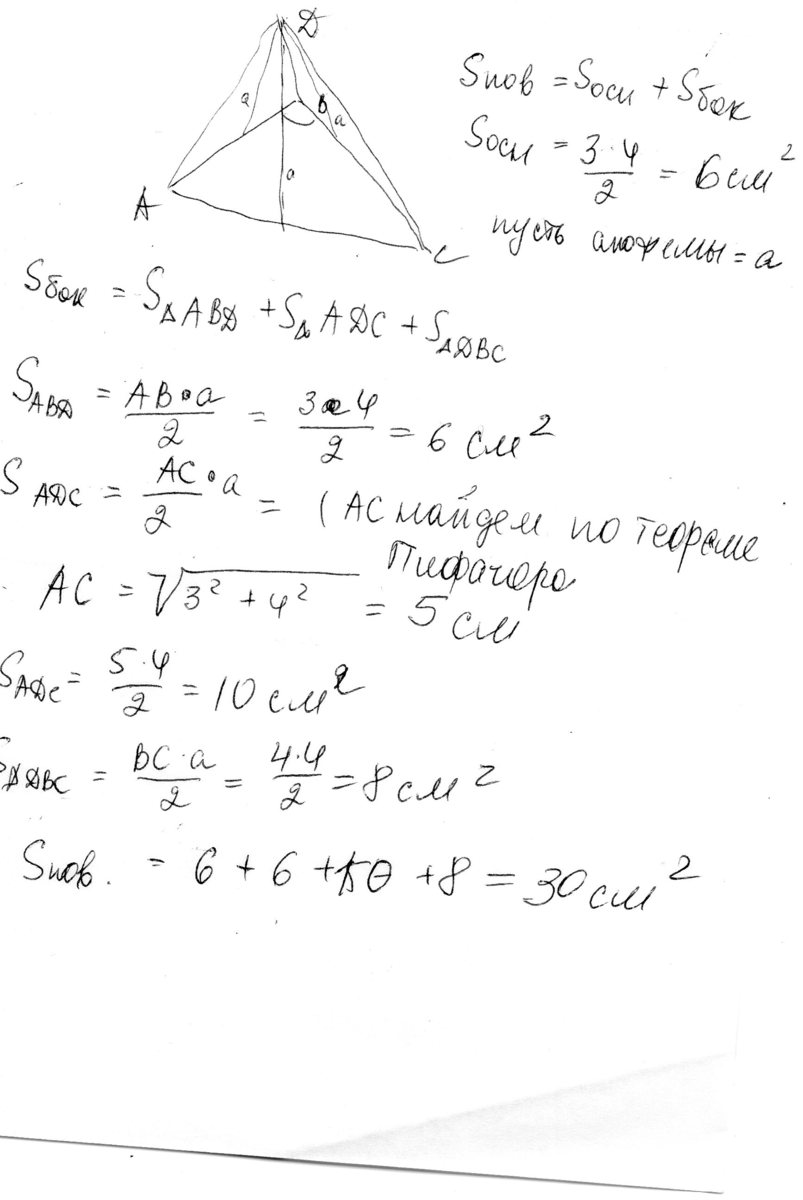 D
a
B
a
a
A
C
Sпов = Sосн + Sбок
Sосн = 3·4/2 = 6 см²
пусть апофемы = a
Sбок = S△ABD + S△ADC + S△DBC
SABD = AB·a/2 = 3·4/2 = 6 см²
SADC = AC·a/2 = ( AC найдем по теореме
Пифагора
AC = √3² + 4² = 5 см
SADC = 5·4/2 = 10 см²
S△DBC = BC·a/2 = 4·4/2 = 8 см²
Sпов. = 6 + 6 + 10 + 8 = 30 см²